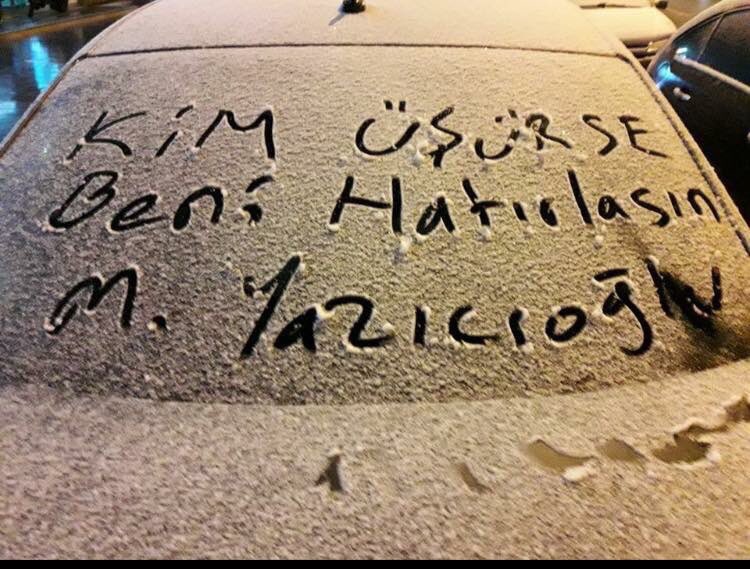 KiM ÜŞÜRSE
Beni Hatırlasın
M. Yazıcıoğlu